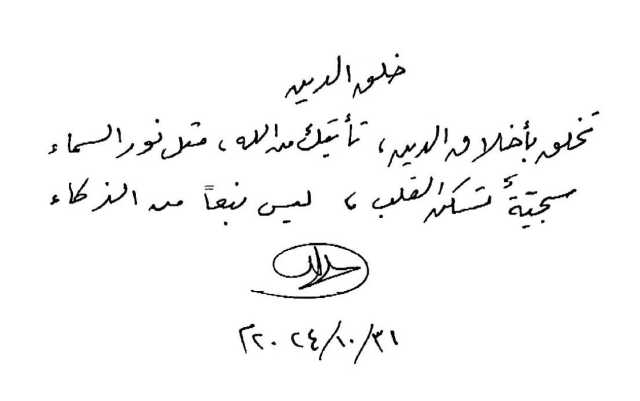 خلق الدين
تخلق بأخلاق الدين، تأتيك من الله، مثل نور السماء
سجيّةٌ تسكن القلب، ليس نبعاً من الذكاء
٢٠٢٤/١٠/٣١م